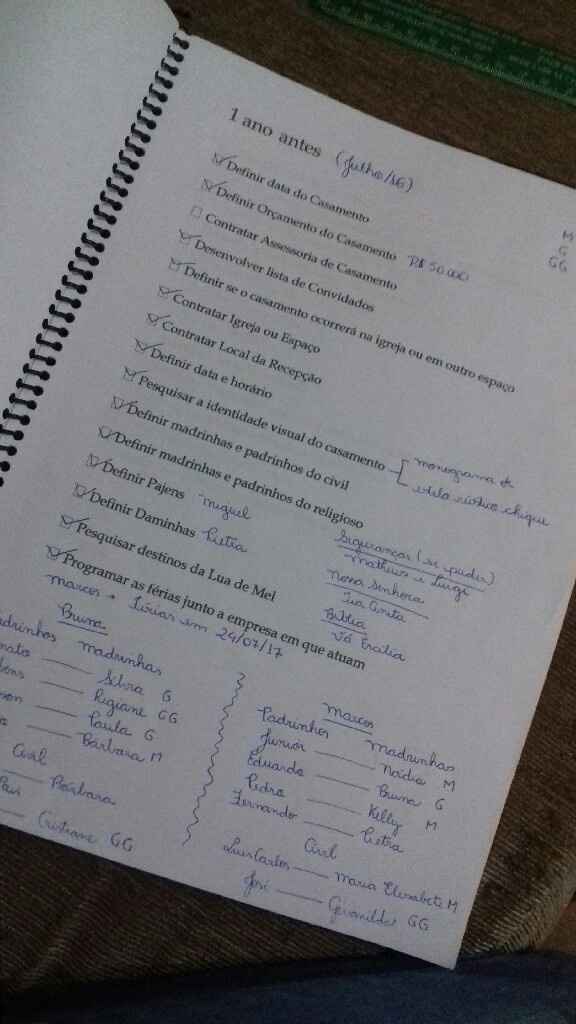 1 ano antes (Julho/16)
M
G
GG
Definir data do Casamento
Definir Orçamento do Casamento R$ 50.000
Contratar Assessoria de Casamento
Desenvolver lista de Convidados
Definir se o casamento ocorrerá na igreja ou em outro espaço
Contratar Igreja ou Espaço
Contratar Local da Recepção
Definir data e horário
Pesquisar a identidade visual do casamento
monograma
rústico chique
Definir madrinhas e padrinhos do civil
Definir madrinhas e padrinhos do religioso
Definir Pajens Miguel
Definir Daminhas Pietra
Pesquisar destinos da Lua de Mel
Programar as férias junto a empresa em que atuam
Marcos Férias em 24/07/17
Seguranças (se puder)
Matheus e Luigi
Nossa Senhora
Tia Anita
Bíblia
Vó
Bruna
Madrinhas
Selvia G
Regiane GG
Paula G
Bárbara M
Civil
Bárbara
Cristiane GG
Marcos
Padrinhos Madrinhas
Junior Nádia M
Eduardo Bruna G
Pedro Kelly M
Fernando Pietra
Civil
Luis Carlos Maria Elisabete M
José GG